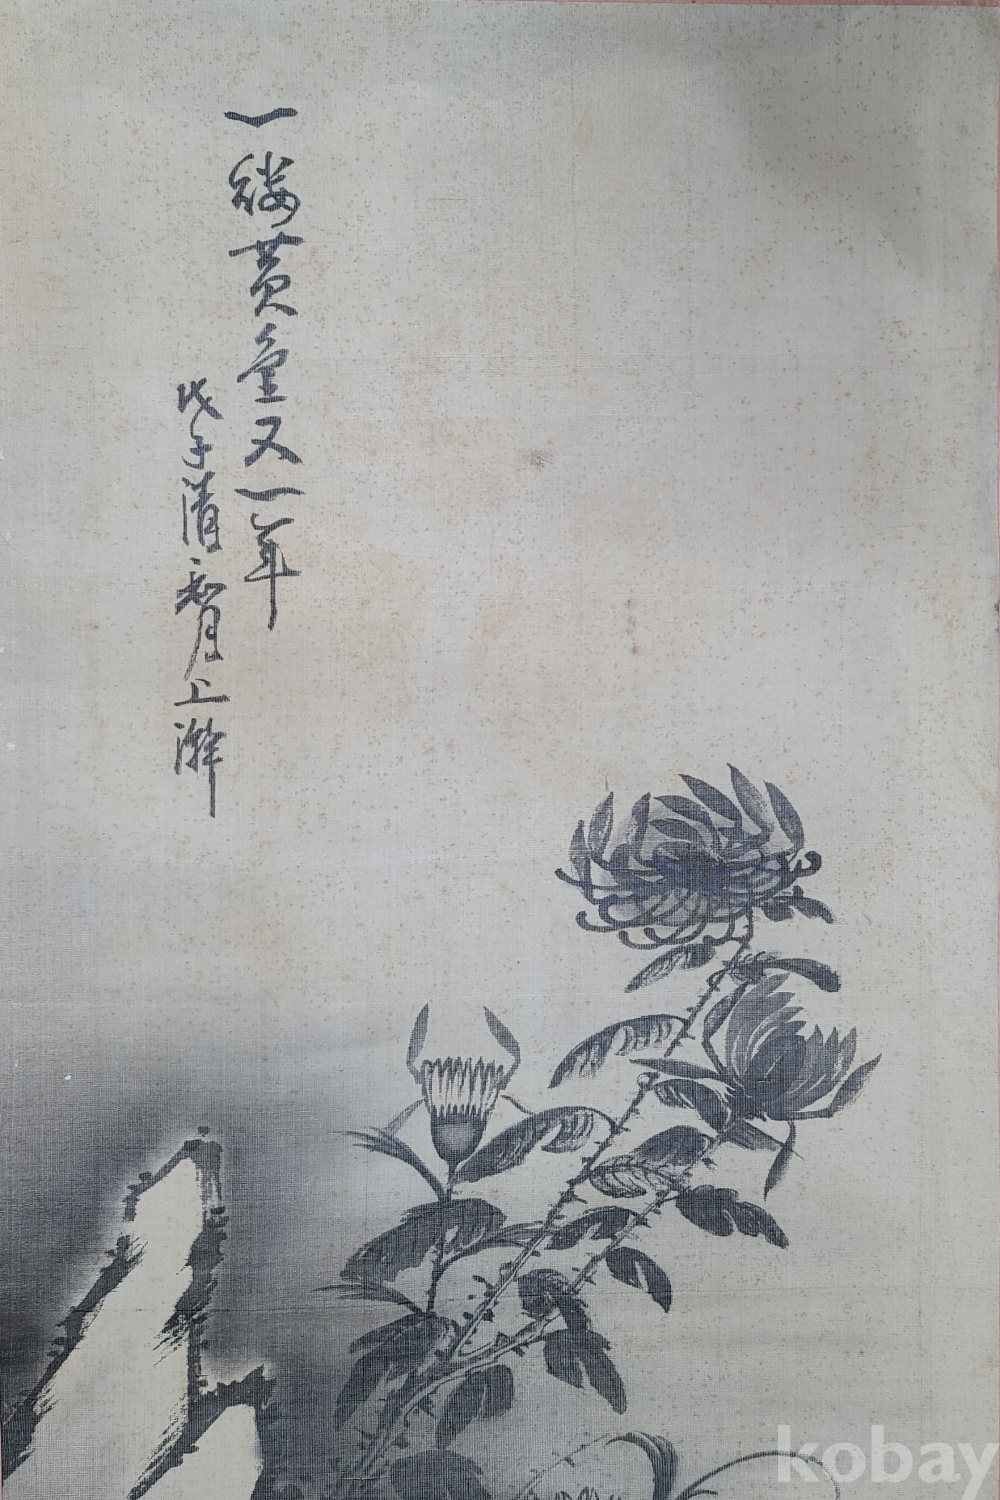 一縷黃金又一年
戊子清和月上澣
kobay